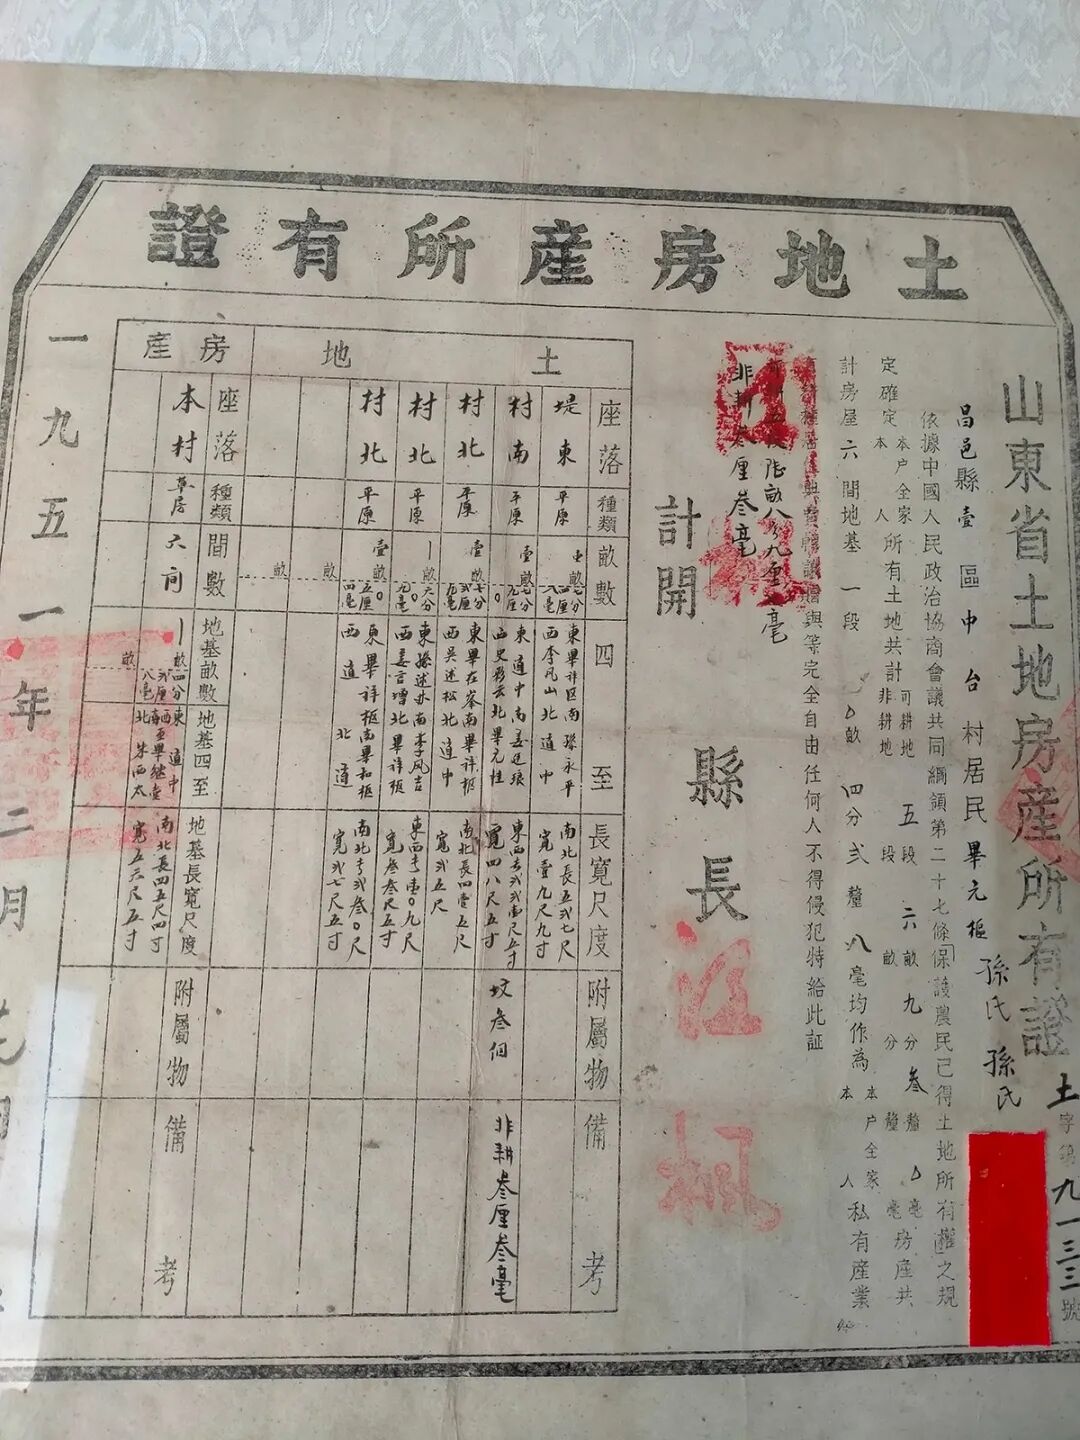 土地房產所有證
山東省土地房產所有證
土字第九一三三號
昌邑縣壹區中台村居民畢元樞 孫氏 孫氏
依據中國人民政治協商會議共同綱領第二十七條「保護農民已得土地所有權」之規
定確定本戶全家本人所有土地共計可耕地五段六畝九分叁釐〇毫非耕地段畝分釐毫房產共
計房屋六間地基一段〇畝四分弍釐八毫均作為本戶全家本人私有產業
有耕種居住典賣轉讓贈與等完全自由任何人不得侵犯特給此証
非耕叁厘叁毫
計開
縣長
土地
座落 種類 畝數 四至 長寬尺度 附屬物 備考
堤東 平原 東畢祥区南孫永平 西李凡山北道中 南北長五弍七尺 寬壹九尺九寸
村南 平原 壹畝七分九厘 東道中南姜廷琅 北畢元桂 寬四八尺五寸 坟叁個 非耕叁厘叁毫
村北 平原 東畢在峯南畢祥樞 西吴述松北道中 南北長四壹五尺 寬弍五尺
村北 平原 東孫述亦南李凤吉 西姜言增北畢祥樞 寬叁叁尺五寸
村北 平原 東畢祥樞南畢和樞 西道北道 寬弍七尺五寸
房產
座落 種類 間數 地基畝數 地基四至 地基長寬尺度 附屬物 備考
本村 草房 六间 畝四分弍厘八毫 南北長四五尺四寸 寬五六尺五寸
一九五一年二月